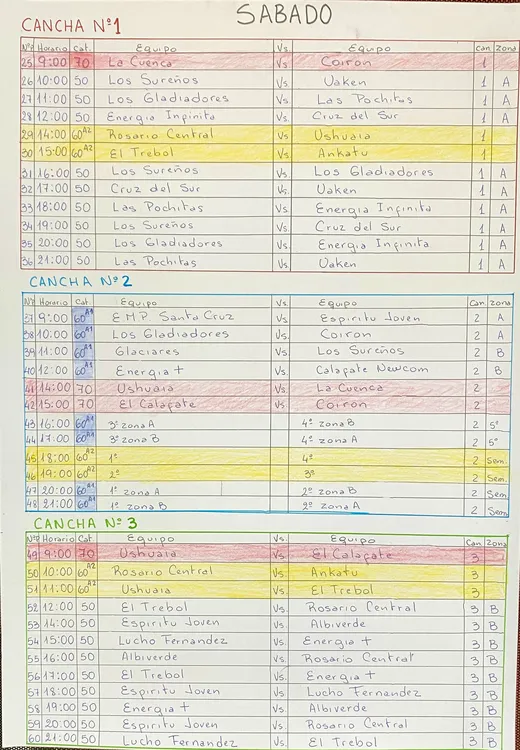 SABADO
CANCHA Nº1
Nº Horario Cat. Equipo Vs. Equipo Can. Zona
25 9:00 70 La Cuenca Vs Coiron 1
26 10:00 50 Los Sureños Vs Uaken 1 A
27 11:00 50 Los Gladiadores Vs Las Pochitas 1 A
28 12:00 50 Energia Infinita Vs. Cruz del Sur 1 A
29 14:00 60A2 Rosario Central Vs. Ushuaia 1
30 15:00 60A2 El Trebol Vs. Ankatu 1
31 16:00 50 Los Sureños Vs. Los Gladiadores 1 A
32 17:00 50 Cruz del Sur Vs. Uaken 1 A
33 18:00 50 Las Pochitas Vs. Energia Infinita 1 A
34 19:00 50 Los Sureños Vs. Cruz del Sur 1 A
35 20:00 50 Los Gladiadores Vs. Energia Infinita 1 A
36 21:00 50 Las Pochitas Vs. Uaken 1 A
CANCHA Nº2
Nº Horario Cat. Equipo Vs. Equipo Can. Zona
37 9:00 60A1 E.M.P. Santa Cruz Vs. Espiritu Joven 2 A
38 10:00 60A1 Los Gladiadores Vs. Coiron 2 A
39 11:00 60A1 Glaciares Vs. Los Sureños 2 B
40 12:00 60A1 Energia + Vs. Calafate Newcom 2 B
41 14:00 70 Ushuaia Vs. La Cuenca 2
42 15:00 70 El Calafate Vs. Coiron 2
43 16:00 60A1 3º zona A Vs. 4º zona B 2 5º
44 17:00 60A1 3º zona B Vs. 4º zona A 2 5º
45 18:00 60A2 1º Vs. 4º 2 Sem.
46 19:00 60A2 2º Vs. 3º 2 Sem.
47 20:00 60A1 1º zona A Vs. 2º zona B 2 Sem.
48 21:00 60A1 1º zona B Vs. 2º zona A 2 Sem.
CANCHA Nº 3
Nº Horario Cat. Equipo Vs. Equipo Can. Zona
49 9:00 70 Ushuaia Vs. El Calafate 3
50 10:00 60A2 Rosario Central Vs. Ankatu 3
51 11:00 60A2 Ushuaia Vs. El Trebol 3
52 12:00 50 El Trebol Vs. Rosario Central 3 B
53 14:00 50 Espiritu Joven Vs. Albiverde 3 B
54 15:00 50 Lucho Fernandez Vs. Energia + 3 B
55 16:00 50 Albiverde Vs. Rosario Central 3 B
56 17:00 50 El Trebol Vs. Energia + 3 B
57 18:00 50 Espiritu Joven Vs. Lucho Fernandez 3 B
58 19:00 50 Energia + Vs. Albiverde 3 B
59 20:00 50 Espiritu Joven Vs. Rosario Central 3 B
60 21:00 50 Lucho Fernandez Vs. El Trebol 3 B